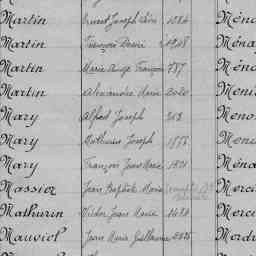 Martin Ernest Joseph 1084 Méno
Martin François Désiré 1908 Ména
Martin Marie Ange François 787 Ména
Martin Alexandre Marie 2020 Meni
Mary Alfred Joseph 368 Meno
Mary Mathurin Joseph 1776 Mene
Mary François Jean Marie 1821 Ména
Massier Jean Baptiste Marie Merci
Mathurin Victor Jean Marie 1434 Merci
Mauviel Jean Marie Guillaume Merdr